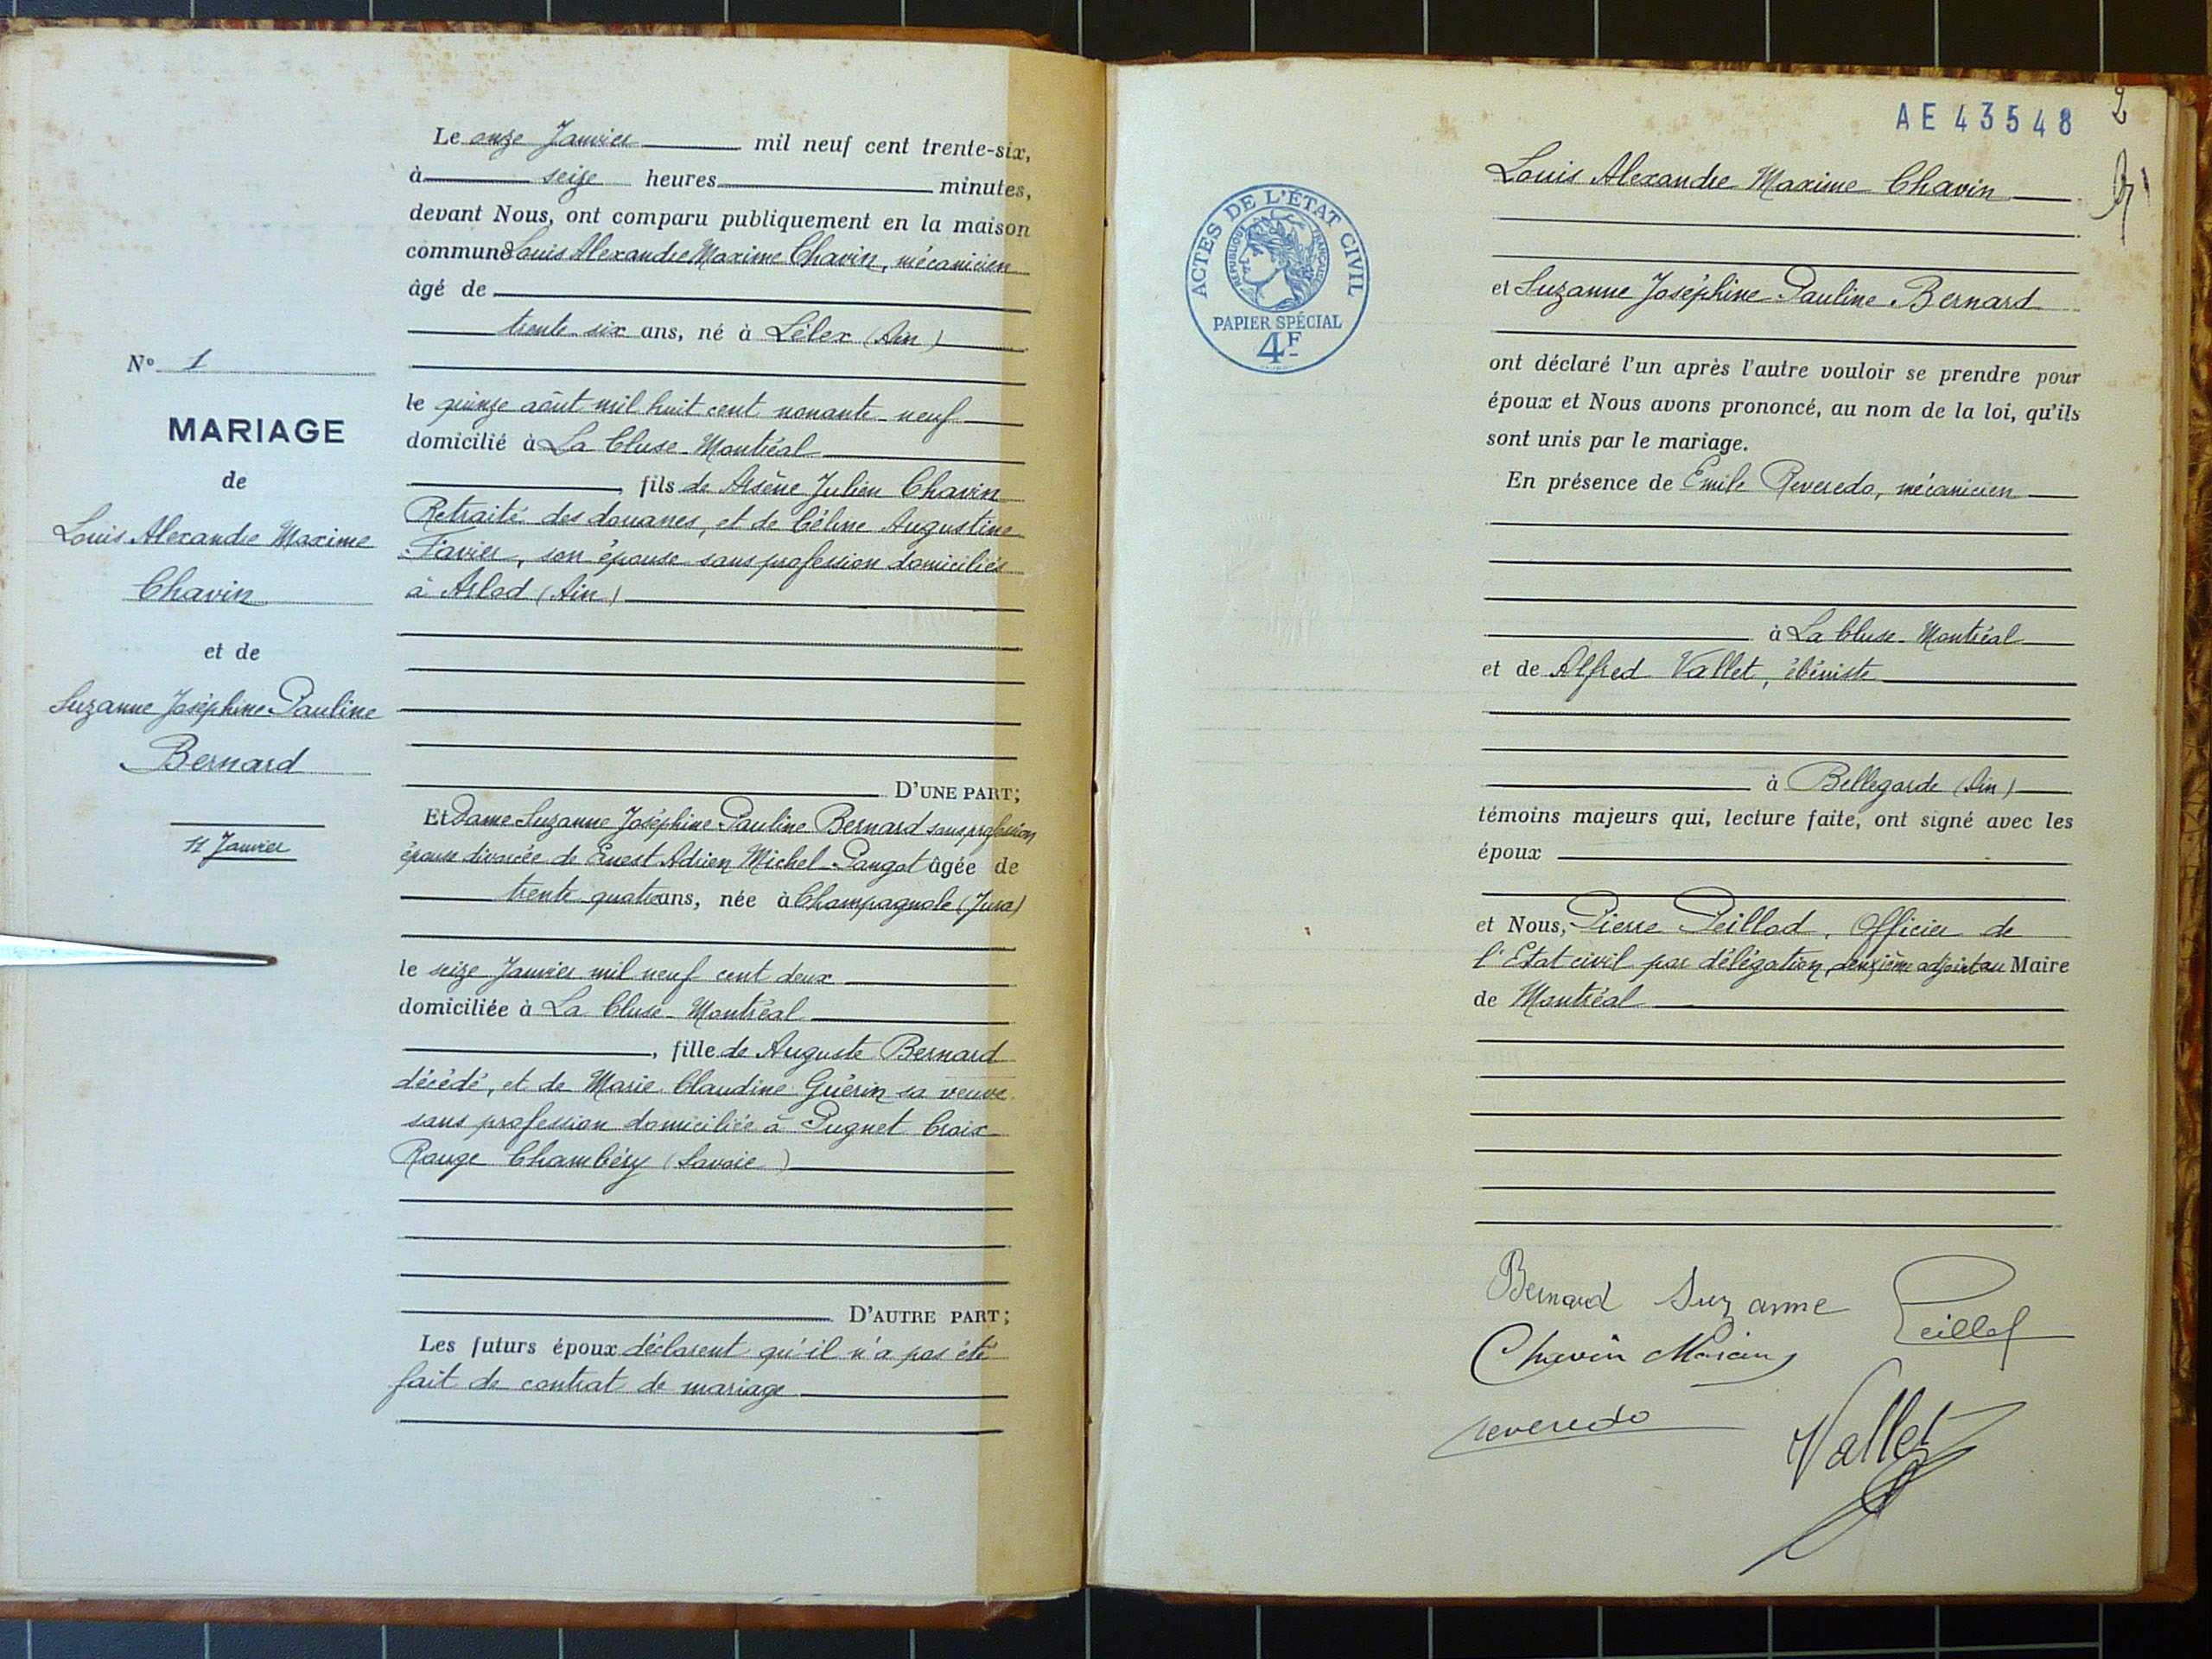 N° 1
MARIAGE
de
Louis Alexandre Maxime
Chavin
et de
Suzanne Joséphine Pauline
Bernard
11 Janvier
Le onze Janvier mil neuf cent trente-six,
à seize heures minutes,
devant Nous, ont comparu publiquement en la maison
commune Louis Alexandre Maxime Chavin, mécanicien
âgé de
trente six ans, né à Lélex (Ain)
le quinze août mil huit cent nonante neuf
domicilié à La Cluse-Montréal
, fils de Arsène Julien Chavin
Retraité des douanes, et de Céline Augustine
Favier, son épouse sans profession domiciliés
à Arlod (Ain)
D'UNE PART;
Et Dame Suzanne Joséphine Pauline Bernard sans profession
épouse divorcée de Ernest Adrien Michel-Pangot âgée de
trente quatre ans, née à Champagnole (Jura)
le seize Janvier mil neuf cent deux
domiciliée à La Cluse-Montréal
, fille de Auguste Bernard
décédé, et de Marie Claudine Guérin sa veuve
sans profession domiciliée à Pugnet Croix
Rouge Chambéry (Savoie)
D'AUTRE PART;
Les futurs époux déclarent qu'il n'a pas été
fait de contrat de mariage
AE 43548
2
ACTES DE L'ÉTAT CIVIL
RÉPUBLIQUE FRANÇAISE
PAPIER SPÉCIAL
4F
Louis Alexandre Maxime Chavin
et Suzanne Joséphine Pauline Bernard
ont déclaré l'un après l'autre vouloir se prendre pour
époux et Nous avons prononcé, au nom de la loi, qu'ils
sont unis par le mariage.
En présence de Emile Reveredo, mécanicien
à La Cluse-Montréal
et de Alfred Vallet, ébéniste
à Bellegarde (Ain)
témoins majeurs qui, lecture faite, ont signé avec les
époux
et Nous, Pierre Peillod, Officier de
l'Etat civil par délégation, deuxième adjoint au Maire
de Montréal
Bernard Suzanne
Peillod
Chavin Maxime
reveredo
Vallet